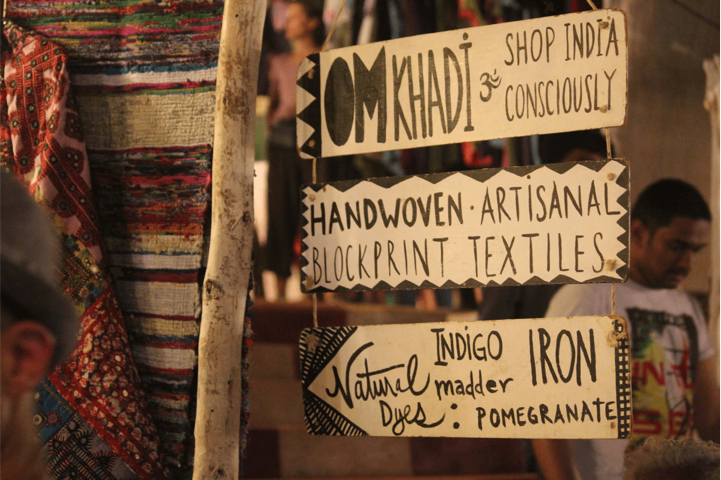 OM KHADi ॐ SHOP INDIA
CONSCIOUSLY
HANDWOVEN · ARTiSANAL
BLOCKPRINT TEXTILES
Natural Dyes:
INDiGO IRON
madder
POMEGRANATE